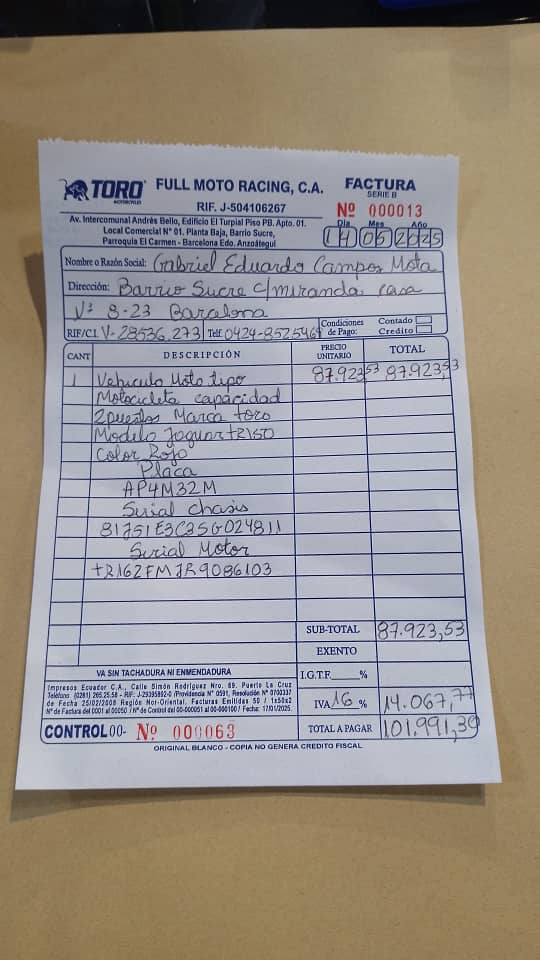 TORO FULL MOTO RACING, C.A. FACTURA
MOTORCYCLES RIF. J-504106267 SERIE B
Nº 000013
Av. Intercomunal Andrés Bello, Edificio El Turpial Piso PB. Apto. 01.
Local Comercial N° 01. Planta Baja, Barrio Sucre,
Parroquia El Carmen - Barcelona Edo. Anzoátegui
Día Mes Año
14 05 2025
Nombre o Razón Social: Gabriel Eduardo Campos Mota
Dirección: Barrio Sucre c/miranda casa
Nº 8-23 Barcelona
RIF/C.I. V-28536.273 Telf. 0424-8525468 Condiciones de Pago: Contado Credito
CANT DESCRIPCIÓN PRECIO UNITARIO TOTAL
1 Vehiculo Moto tipo 87.923,53 87.923,53
Motocicleta capacidad
2puestos Marca toro
Modelo Jaguar tR150
Color Rojo
Placa
AP4M32M
Serial chasis
81JS1E3C3SG024811
Serial Motor
tR162FMJR9086103
SUB-TOTAL 87.923,53
EXENTO
VA SIN TACHADURA NI ENMENDADURA
I.G.T.F. %
Impresos Ecuador C.A., Calle Simón Rodríguez Nro. 69, Puerto La Cruz
Teléfono (0281) 265.25.58 - RIF: J-29395892-0 /Providencia N° 0591, Resolución N° 0700337
de Fecha 25/02/2008 Región Nor-Oriental. Facturas Emitidas 50 / 1x50x2
N° de Factura del 0001 al 00050 / N° de Control del 00-000051 al 00-000100 / Fecha: 17/01/2025.
IVA 16 % 14.067,77
CONTROL 00- Nº 000063
TOTAL A PAGAR 101.991,30
ORIGINAL BLANCO - COPIA NO GENERA CREDITO FISCAL